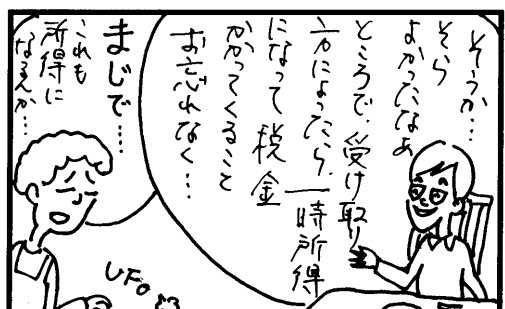 そうか…
そら
よかったなぁ
ところで、受け取り
方によったら、一時所得
になって税金
かかってくること
お忘れなく…
まじで…
これも
所得に
なるんか…
UFO